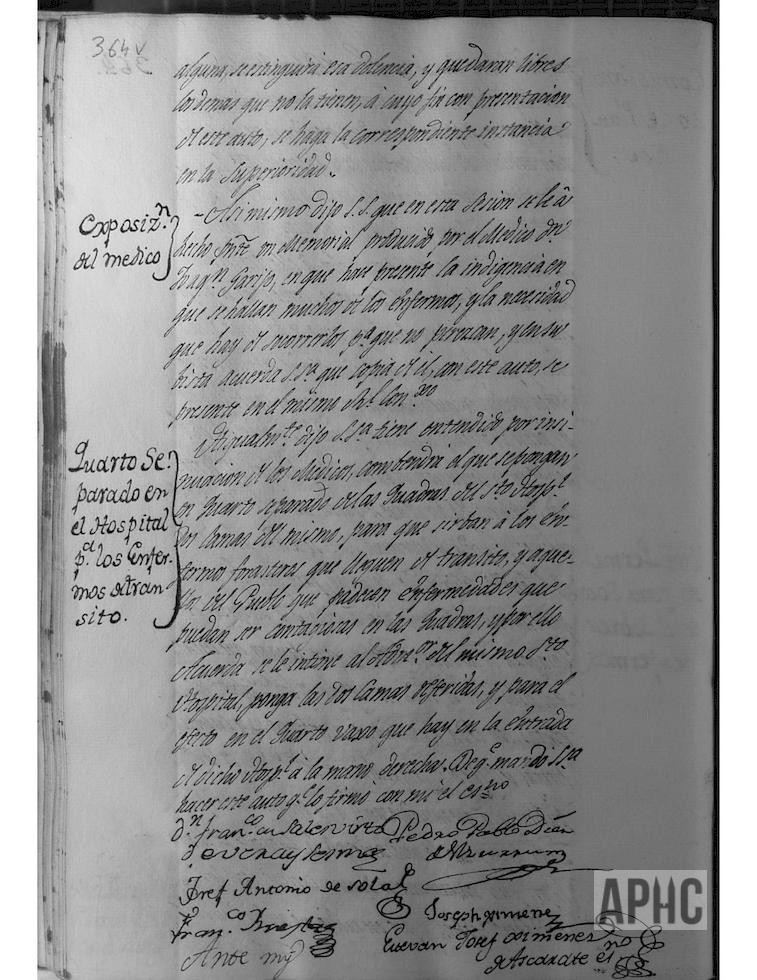 364v
alguna, se extinguirá esa dolencia, y quedaran libres
los demas que no la tienen, à cuyo fin con presentacion
de este auto, se haga la correspondiente instancia
en la Superioridad.
Exposiz.n
del medico
Asi mismo dijo S.S. que en esta Sesion se le à
hecho un Memorial producido por el Medico Dn.
Joaq.n Garijo, en que hace presente la indigencia en
que se hallan muchos de los enfermos, y la necesidad
que hay de socorrerlos p.a que no perezcan, y en su
vista acuerda S.Sa que copia de él, con este auto, se
presente en el mismo
Quarto Se-
parado en
el Hospital
p.a los Enfer-
mos de tran
sito.
Igualm.te dijo S.Sa tiene entendido por insi-
nuacion de los Medicos, combendrá el que se pongan
en Quarto separado de las Quadras del S.to Hosp.l
dos camas del mismo, para que sirban à los en-
fermos forasteros que lleguen de transito, y aque-
llos del Pueblo que padecen enfermedades que
puedan ser contagiosas en las Quadras, y por ello
Acuerda se le intime al Adm.or del mismo S.to
Hospital, ponga las dos Camas referidas, y para el
efecto en el Quarto vaxo que hay en la entrada
de dicho Hosp.l à la mano derecha. Deq.e mandó S.Sa
hacer este auto q.e lo firmó con mi el es.no
D.n Fran.co
Pedro Pablo Diaz
Josef Antonio de
Joseph Ximenez
Fran.co
Ante mi
Estevan Josef Ximenes
de Ascarate es.no
APHC